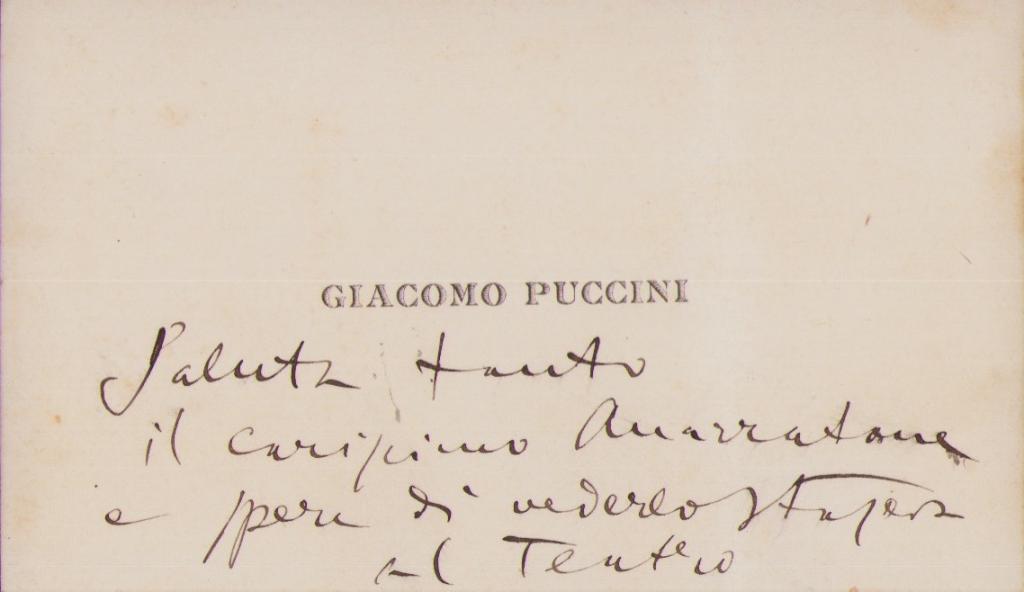 GIACOMO PUCCINI
Saluta tanto
il carissimo
e spera di vederlo stasera
al Teatro